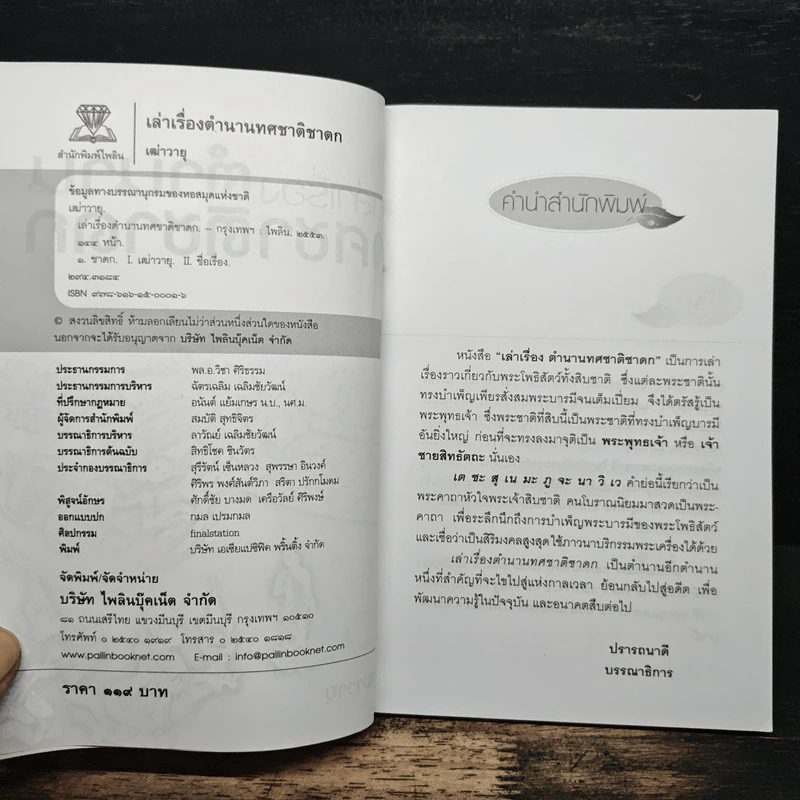 สำนักพิมพ์ไพลิน
เล่าเรื่องตำนานทศชาติชาดก
เฒ่าวายุ
ข้อมูลทางบรรณานุกรมของหอสมุดแห่งชาติ
เฒ่าวายุ.
เล่าเรื่องตำนานทศชาติชาดก. – กรุงเทพฯ : ไพลิน, ๒๕๕๓.
๑๔๔ หน้า.
๑. ชาดก. I. เฒ่าวายุ. II. ชื่อเรื่อง.
๒๙๔.๓๑๘๔
ISBN ๙๗๘-๖๑๖-๑๕-๐๐๐๑-๖
© สงวนลิขสิทธิ์ ห้ามลอกเลียนไม่ว่าส่วนหนึ่งส่วนใดของหนังสือ
นอกจากจะได้รับอนุญาตจาก บริษัท ไพลินบุ๊คเน็ต จำกัด
ประธานกรรมการ พล.อ.วิชา ศิริธรรม
ประธานกรรมการบริหาร ฉัตรเฉลิม เฉลิมชัยวัฒน์
ที่ปรึกษากฎหมาย อนันต์ แย้มเกษร น.บ., นศ.ม.
ผู้จัดการสำนักพิมพ์ สมบัติ สุทธิจิตร
บรรณาธิการบริหาร ลาวัณย์ เฉลิมชัยวัฒน์
บรรณาธิการต้นฉบับ สิทธิโชค ชินวัตร
ประจำกองบรรณาธิการ สุรีรัตน์ เซ็นหลวง สุพรรษา อินวงค์
ศิริพร พงศ์สันต์วิภา สริตา ปรักกโมดม
พิสูจน์อักษร ศักดิ์ชัย บางมด เครือวัลย์ ศิริพงษ์
ออกแบบปก กมล เปรมกมล
ศิลปกรรม finalstation
พิมพ์ บริษัท เอเซียแปซิฟิค พริ้นติ้ง จำกัด
จัดพิมพ์/จัดจำหน่าย
บริษัท ไพลินบุ๊คเน็ต จำกัด
๘๑ ถนนเสรีไทย แขวงมีนบุรี เขตมีนบุรี กรุงเทพฯ ๑๐๕๑๐
โทรศัพท์ ๐ ๒๕๔๐ ๑๙๑๙ โทรสาร ๐ ๒๕๔๐ ๑๘๑๘
www.pailinbooknet.com E-mail : info@pailinbooknet.com
ราคา ๑๑๙ บาท
คำนำสำนักพิมพ์
หนังสือ “เล่าเรื่อง ตำนานทศชาติชาดก” เป็นการเล่า
เรื่องราวเกี่ยวกับพระโพธิสัตว์ทั้งสิบชาติ ซึ่งแต่ละพระชาตินั้น
ทรงบำเพ็ญเพียรสั่งสมพระบารมีจนเต็มเปี่ยม จึงได้ตรัสรู้เป็น
พระพุทธเจ้า ซึ่งพระชาติที่สิบนี้เป็นพระชาติที่ทรงบำเพ็ญบารมี
อันยิ่งใหญ่ ก่อนที่จะทรงลงมาจุติเป็น พระพุทธเจ้า หรือ เจ้า
ชายสิทธัตถะ นั่นเอง
เต ชะ สุ เน มะ ภู จะ นา วิ เว คำย่อนี้เรียกว่าเป็น
พระคาถาหัวใจพระเจ้าสิบชาติ คนโบราณนิยมมาสวดเป็นพระ-
คาถา เพื่อระลึกนึกถึงการบำเพ็ญพระบารมีของพระโพธิสัตว์
และเชื่อว่าเป็นสิริมงคลสูงสุด ใช้ภาวนาบริกรรมพระเครื่องได้ด้วย
เล่าเรื่องตำนานทศชาติชาดก เป็นตำนานอีกตำนาน
หนึ่งที่สำคัญที่จะไขไปสู่แห่งกาลเวลา ย้อนกลับไปสู่อดีต เพื่อ
พัฒนาความรู้ในปัจจุบัน และอนาคตสืบต่อไป
ปรารถนาดี
บรรณาธิการ